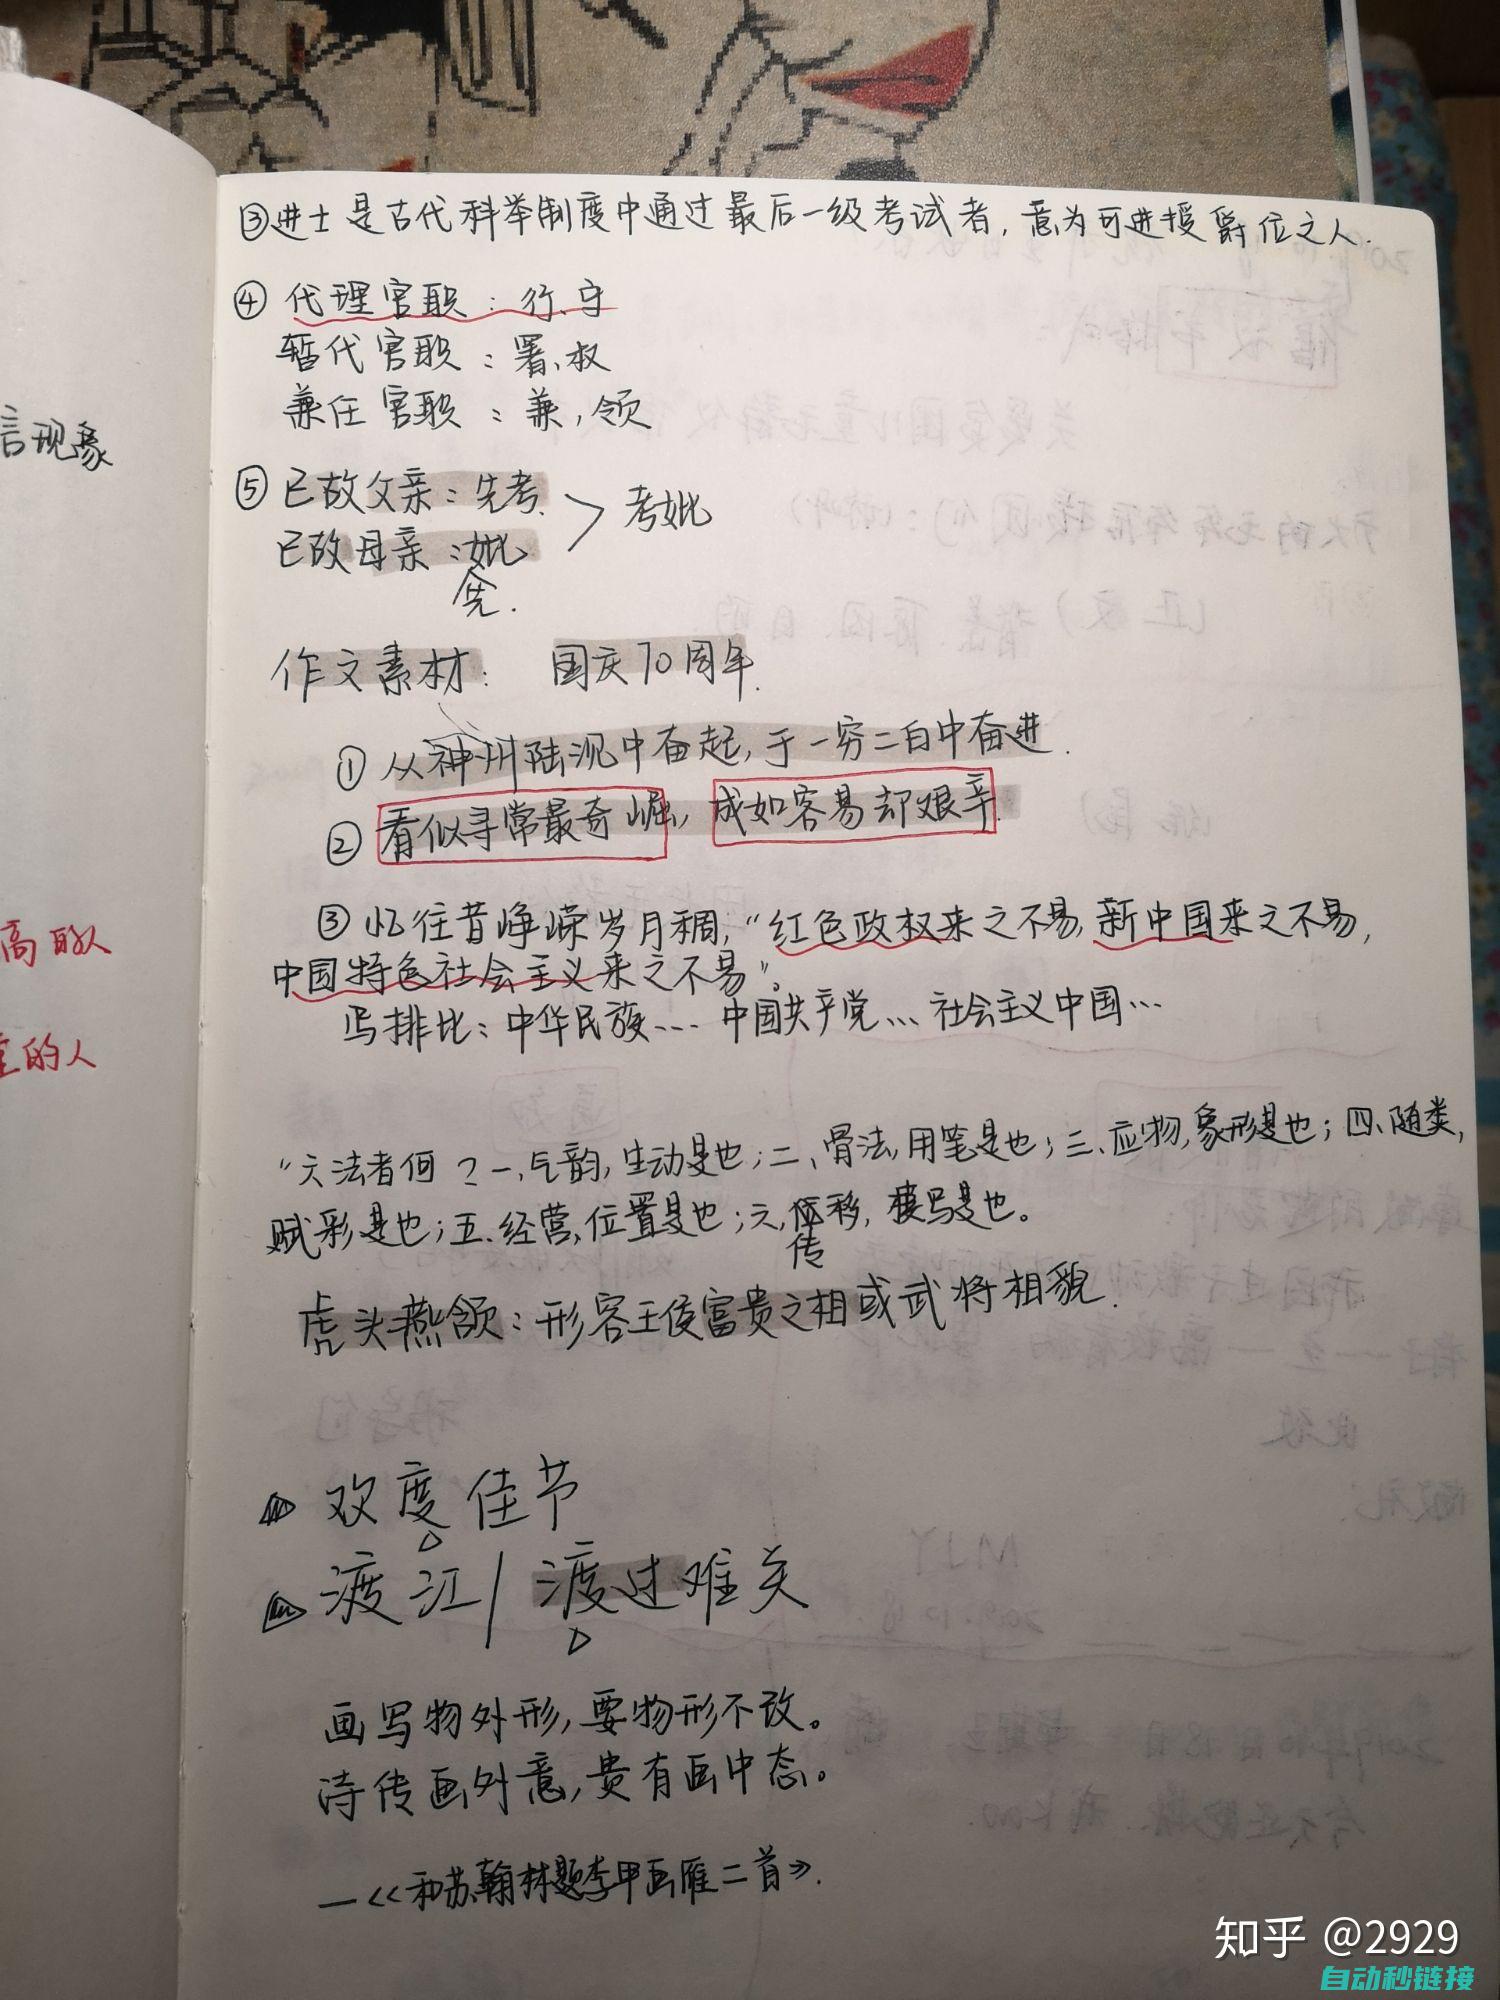 ③进士是古代科举制度中通过最后一级考试者，意为可进授爵位之人.
④代理官职：行、守
暂代官职：署、权
兼任官职：兼，领
言现象
⑤已故父亲：先考.
考妣
已故母亲：妣
先.
作文素材：国庆70周年.
①从神州陆沉中奋起，于一穷二白中奋进.
②看似寻常最奇崛，成如容易却艰辛.
③忆往昔峥嵘岁月稠，“红色政权来之不易，新中国来之不易，
中国特色社会主义来之不易”。
写排比：中华民族… 中国共产党… 社会主义中国…
高的人
的人
“六法者何？一、气韵，生动是也；二、骨法，用笔是也；三、应物，象形是也；四、随类，
赋彩是也；五、经营，位置是也；六、移，模写是也。
传
虎头燕颔：形容王侯富贵之相或武将相貌.
欢度佳节
渡江/渡过难关
画写物外形，要物形不改。
诗传画外意，贵有画中态。
—《和苏翰林题李甲画雁二首》.
知乎 @2929
自动秒链接